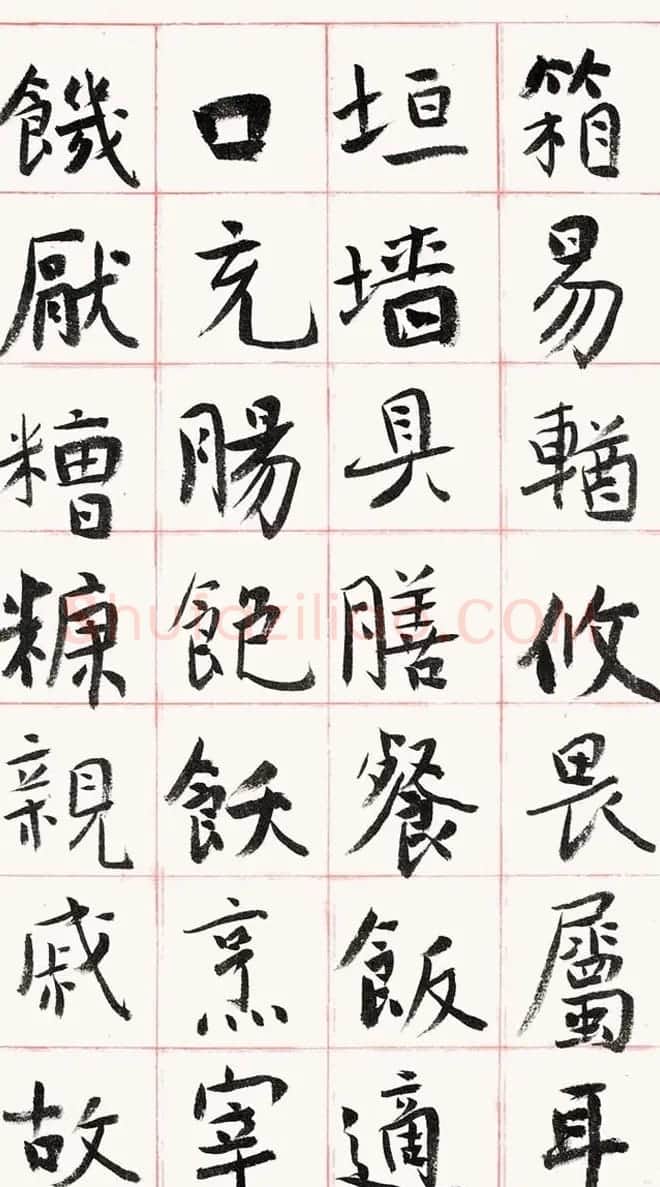 箱易輶攸畏屬耳
垣墙具膳餐飯適
口充腸飽飫烹宰
饑厭糟糠親戚故
Shufaziliao.COM